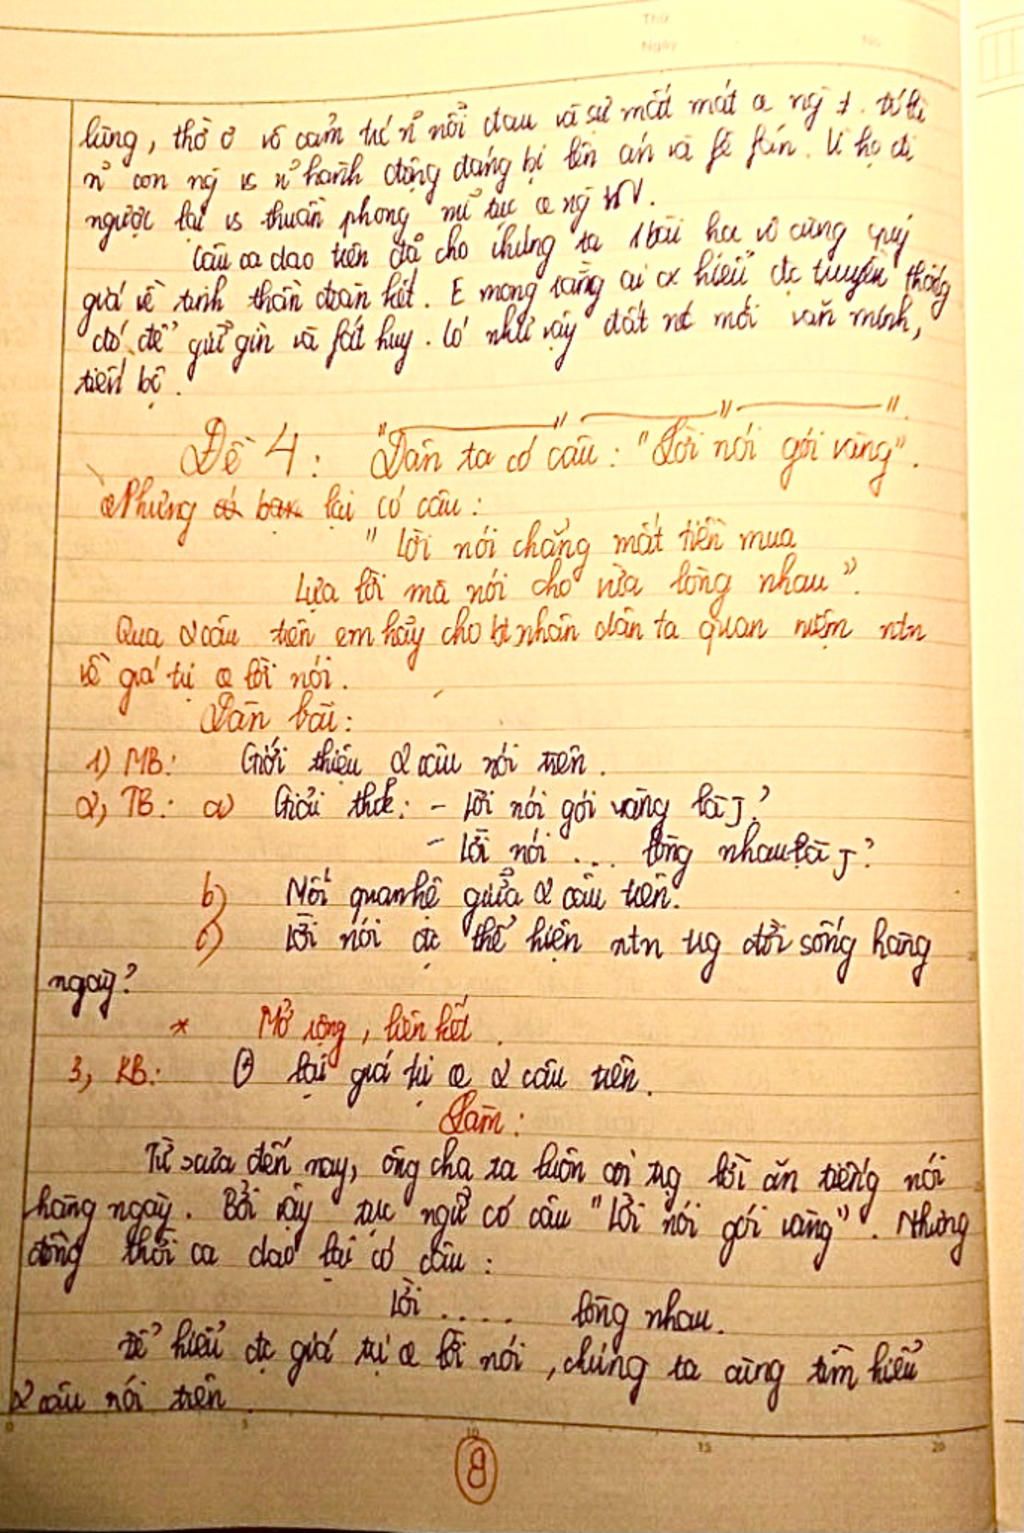 Thứ
Ngày No
lùng, thờ ơ vô cảm trc n~ nỗi đau và sự mất mát ng ≠. Đó là
n~ con ng vs n~ hành động đáng bị lên án và fê fán. Vì họ đi
ngược lại vs thuần phong mĩ tục ng VN.
Câu ca dao trên đã cho chúng ta 1 bài học vô cùng quý
giá về tinh thần đoàn kết. E mong rằng ai cx hiểu đc truyền thống
đó để giữ gìn và fát huy. Có như vậy đất nc mới văn minh,
tiến bộ.
Đề 4: "Dân ta có câu: "Lời nói gói vàng".
Nhưng lại có câu:
"Lời nói chẳng mất tiền mua
Lựa lời mà nói cho vừa lòng nhau".
Qua 2 câu trên em hãy cho bt nhân dân ta quan niệm ntn
về giá trị lời nói.
Dàn bài:
1) MB: Giới thiệu 2 câu nói trên.
2, TB: a) Giải thik: - Lời nói gói vàng là J?
- Lời nói .... lòng nhau là J?
b) Mối quan hệ giữa 2 câu trên.
c) Lời nói đc thể hiện ntn trg đời sống hàng
ngày?
* Mở rộng, liên kết.
3, KB: lại giá trị 2 câu trên.
Làm:
Từ xưa đến nay, ông cha ta luôn coi trg lời ăn tiếng nói
hàng ngày. Bởi vậy tục ngữ có câu "Lời nói gói vàng". Nhưng
đồng thời ca dao lại có câu:
Lời ..... lòng nhau.
Để hiểu đc giá trị lời nói, chúng ta cùng tìm hiểu
2 câu nói trên.
0 5 10 15 20
8